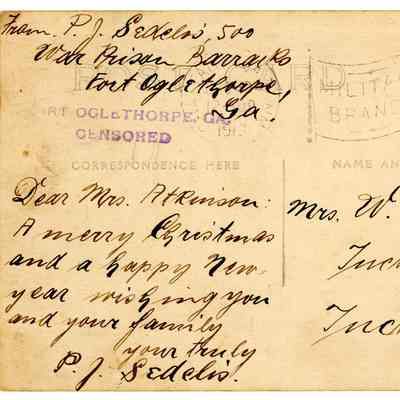 From P. J. Sedelis, 500
War Prison Barracks
Fort Oglethorpe,
Ga.
OGLETHORPE, GA.
CENSORED
BRAN
CORRESPONDENCE HERE
NAME AN
Dear Mrs. Atkinson:
A merry Christmas
and a happy New-
year wishing you
and your family
your truly
P. J. Sedelis.
Mrs. W.